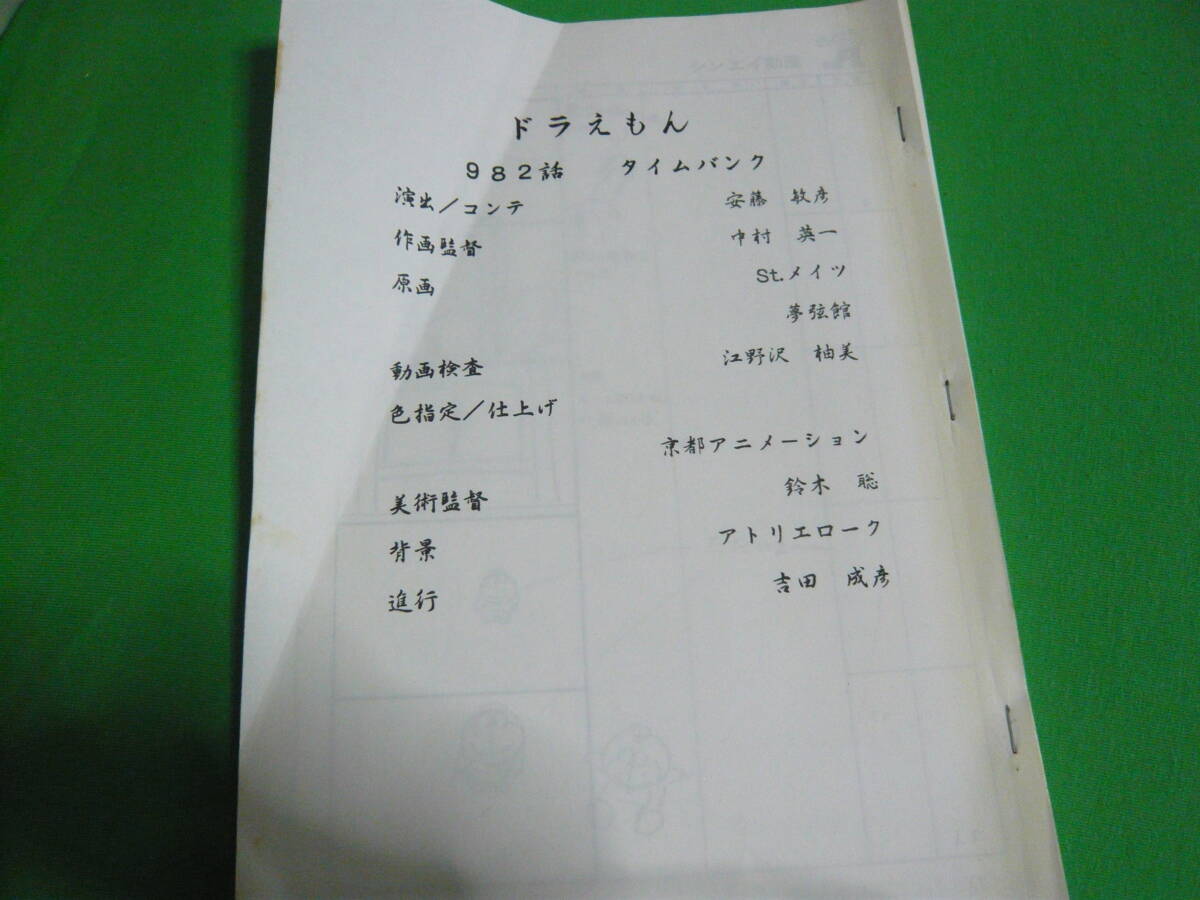 ドラえもん
982話 タイムバンク
演出/コンテ 安藤 敏彦
作画監督 中村 英一
原画 St.メイツ
夢弦館
動画検査 江野沢 柚美
色指定/仕上げ
京都アニメーション
美術監督 鈴木 聡
背景 アトリエローク
進行 吉田 成彦